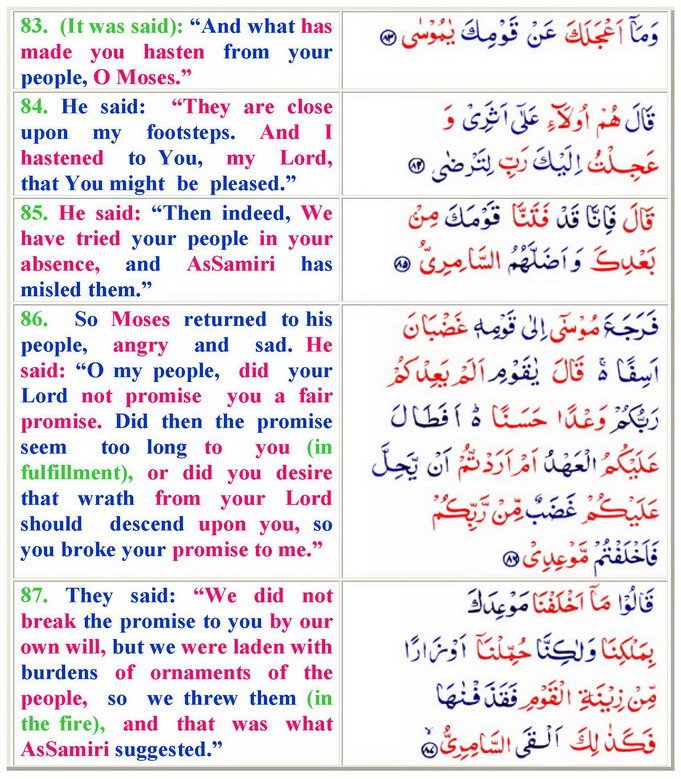 83. (It was said): “And what has
made you hasten from your
people, O Moses.”
وَمَآ اَعْجَلَكَ عَنْ قَوْمِكَ يٰمُوْسٰى ﴿٨٣﴾
84. He said: “They are close
upon my footsteps. And I
hastened to You, my Lord,
that You might be pleased.”
قَالَ هُمْ اُولَآءِ عَلٰٓى اَثَرِىْ وَ
عَجِلْتُ اِلَيْكَ رَبِّ لِتَرْضٰى ﴿٨٤﴾
85. He said: “Then indeed, We
have tried your people in your
absence, and AsSamiri has
misled them.”
قَالَ فَاِنَّا قَدْ فَتَنَّا قَوْمَكَ مِنْۢ
بَعْدِكَ وَ اَضَلَّهُمُ السَّامِرِىُّ ﴿٨٥﴾
86. So Moses returned to his
people, angry and sad. He
said: “O my people, did your
Lord not promise you a fair
promise. Did then the promise
seem too long to you (in
fulfillment), or did you desire
that wrath from your Lord
should descend upon you, so
you broke your promise to me.”
فَرَجَعَ مُوْسٰٓى اِلٰى قَوْمِهٖ غَضْبَانَ
اَسِفًا ۚ قَالَ يٰقَوْمِ اَلَمْ يَعِدْكُمْ
رَبُّكُمْ وَعْدًا حَسَنًا ؕ اَفَطَالَ
عَلَيْكُمُ الْعَهْدُ اَمْ اَرَدْتُّمْ اَنْ يَّحِلَّ
عَلَيْكُمْ غَضَبٌ مِّنْ رَّبِّكُمْ
فَاَخْلَفْتُمْ مَّوْعِدِىْ ﴿٨٦﴾
87. They said: “We did not
break the promise to you by our
own will, but we were laden with
burdens of ornaments of the
people, so we threw them (in
the fire), and that was what
AsSamiri suggested.”
قَالُوْا مَآ اَخْلَفْنَا مَوْعِدَكَ
بِمَلْكِنَا وَلٰكِنَّا حُمِّلْنَآ اَوْزَارًا
مِّنْ زِيْنَةِ الْقَوْمِ فَقَذَفْنٰهَا
فَكَذٰلِكَ اَلْقَى السَّامِرِىُّ ﴿٨٧﴾